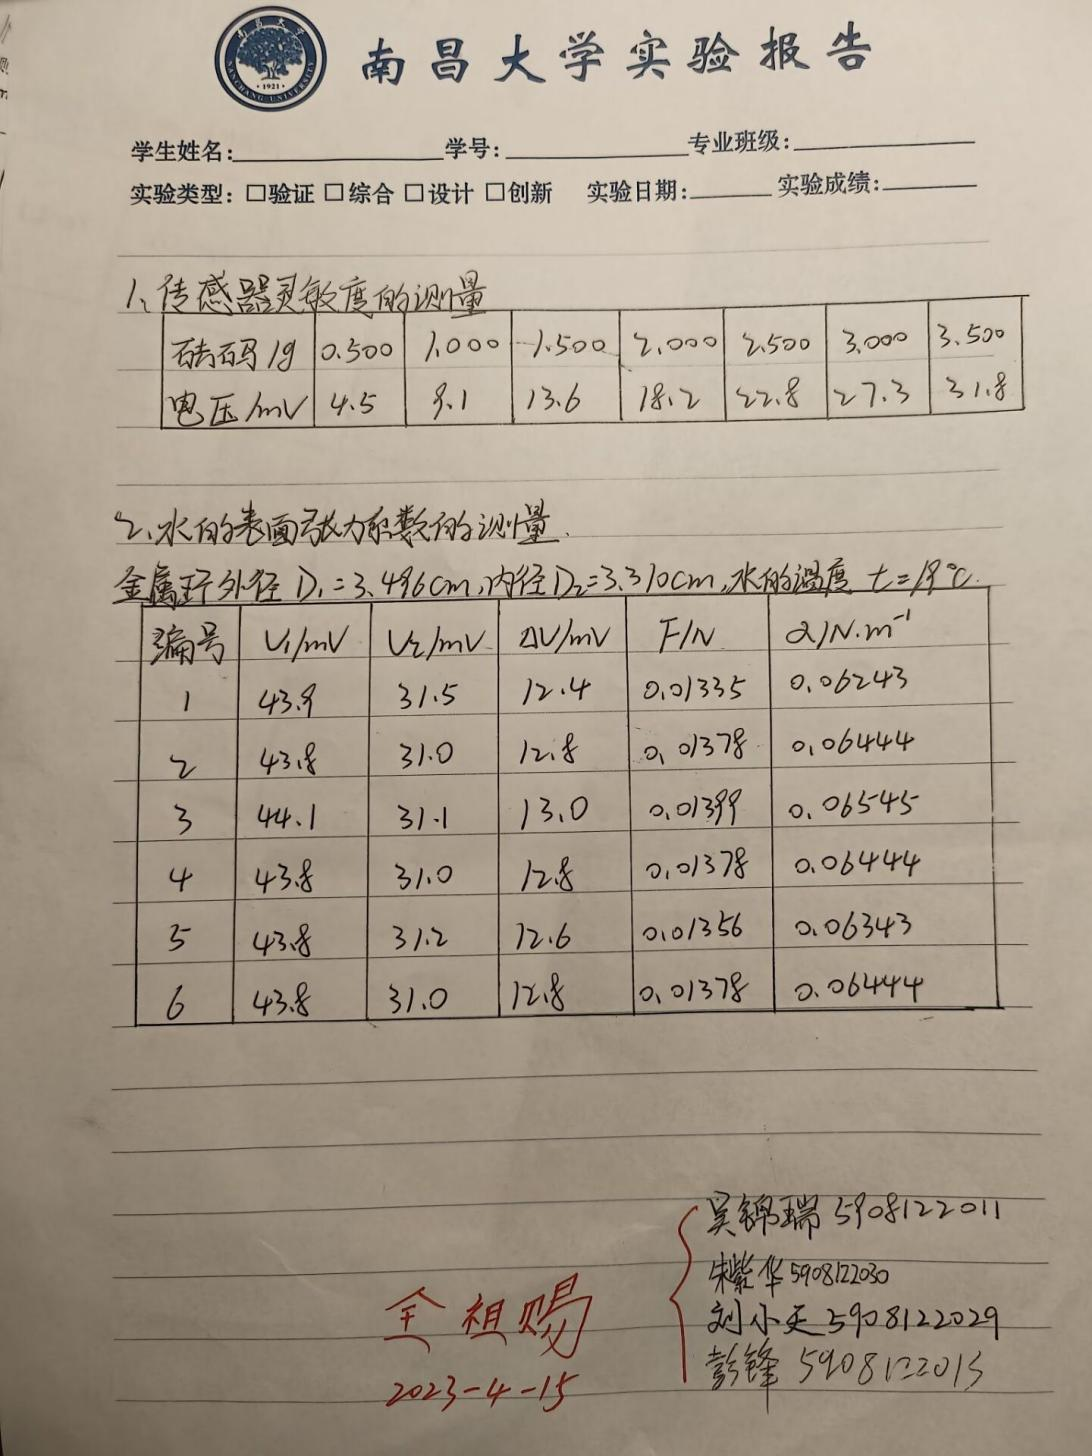 南昌大学
NANCHANG UNIVERSITY
·1921·
南昌大学实验报告
学生姓名: 学号: 专业班级:
实验类型: □验证 □综合 □设计 □创新 实验日期: 实验成绩:
1、传感器灵敏度的测量
砝码/g 0.500 1.000 1.500 2.000 2.500 3.000 3.500
电压/mV 4.5 9.1 13.6 18.2 22.8 27.3 31.8
2、水的表面张力系数的测量.
金属环外径D₁=3.496cm,内径D₂=3.310cm,水的温度 t=19℃.
编号 U₁/mV U₂/mV ΔU/mV F/N α/N·m⁻¹
1 43.9 31.5 12.4 0.01335 0.06243
2 43.8 31.0 12.8 0.01378 0.06444
3 44.1 31.1 13.0 0.01399 0.06545
4 43.8 31.0 12.8 0.01378 0.06444
5 43.8 31.2 12.6 0.01356 0.06343
6 43.8 31.0 12.8 0.01378 0.06444
吴锦瑞 5908122011
朱紫华 5908122030
刘小天 5908122029
彭锋 5908122013
全祖赐
2023-4-15